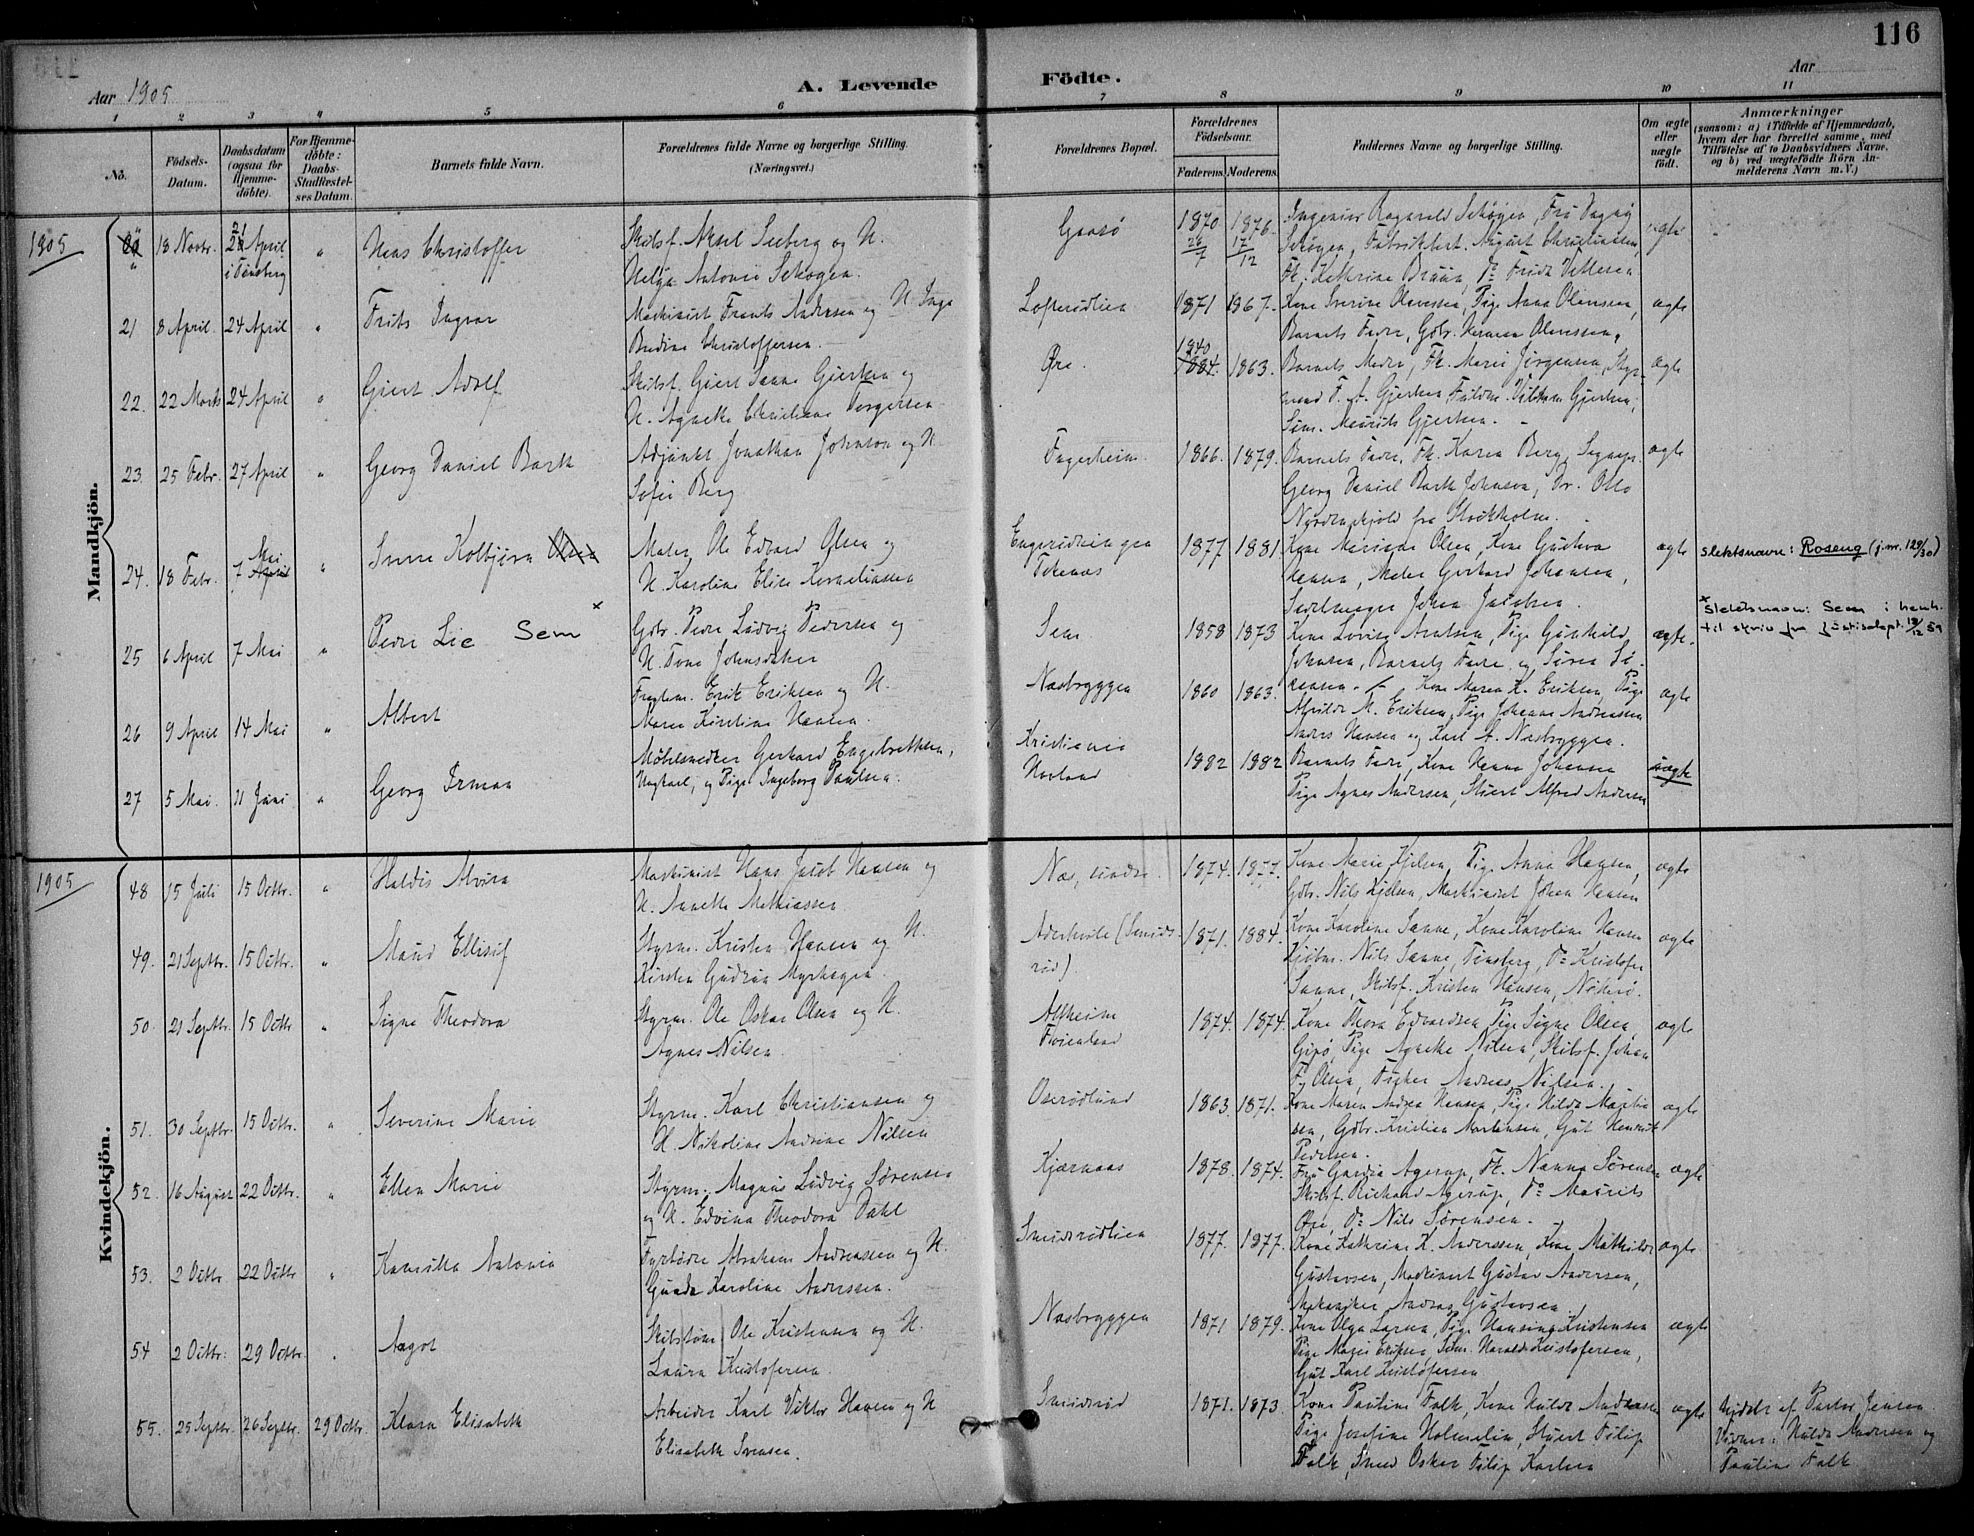 116
Aar 1905
A. Levende
Födte.
Aar
1 2 3 4 5 6 7 8 9 10 11
No.
Födsels-
Datum.
Daabsdatum
(ogsaa for
Hjemme-
döbte).
For Hjemme-
döbte:
Daabs-
Stadfæstel-
ses Datum.
Barnets fulde Navn.
Forældrenes fulde Navne og borgerlige Stilling.
(Næringsvei.)
Forældrenes Bopæl.
Forældrenes
Födselsaar.
Faderens. Moderens.
Faddernes Navne og borgerlige Stilling.
Om ægte
eller
uægte
födt.
Anmærkninger
(saasom: a) i Tilfælde af Hjemmedaab,
hvem der har forrettet samme, med
Tilföielse af to Daabsvidners Navne,
og b) ved uægtefödte Börn An-
melderens Navn m. V.)
Mandkjön.
1905
18 Novbr. 21 April
i Tönsberg
" Christoffer
Skibsf. Aksel Seeberg og H.
Helga Antonie
1870 1876
26/7 17/12
Ingeniør Fru Dagny
Fabrikbest. August Christiansen,
ægte
21 8 April 24 April " Frits Ingvar
Maskinist Frants Andersen og H. Inga
Christoffersen.
1871 1867.
Kone Pige Anna Olaussen,
Barnets Fader, Gdbr. Herman
ægte
22. 22 Marts 24 April " Giert Adolf
Skibsf. Giert Sanne Gjertsen og
H. Agnethe Christiane Torgersen
Øre.
1840
1884. 1863.
Barnets Moder, Fk. Marie Jörgensen, Styr-
mand F. A. Gjertsen, Vilhelm Gjertsen,
Söm. Maurits Gjertsen.
ægte
23. 25 Febr. 27 April " Georg Daniel Barth
Adjunkt Jonathan Johnson og H.
Sofie Berg
Fagerheim.
1866. 1879.
Barnets Fader, Fk. Karen Berg, Sogneprr.
Georg Daniel Barth Johnson, Dr. Otto
Nordenskjold fra Stockholm.
ægte
24. 18 Febr. 7 Mai April " Kolbjörn Olsen
Maler Ole Edvard Olsen og
H. Karoline Elise Korneliussen
1877 1881
Kone Mariane Olsen, Kone Gustava
Hansen, Maler Gerhard Johansen,
Sadelmager Johan Jacobsen.
ægte
slektsnavn: Roseng (j.nr. 129/30)
25 6 April 7 Mai " Peder Lie Sem x
Gdbr. Peder Ludvig Pedersen og
H. Tone Johnsdatter
Sem
1858 1873
Kone Lovise Pige Gunhild
Johnsen, Barnets Fader og Sören Sö-
rensen.
ægte.
x Slektsnavn: Sem i henh.
til skriv fra Justisdept. 18/12 59
26 9 April 14 Mai " Albert
Erik Eriksen og H.
Maren Kirstine Hansen.
Næsbryggen
1860 1863.
Kone Maren K. Eriksen, Pige
Alvilde M. Eriksen, Pige Johanne Andreassen
Anders Hansen og Karl A. Næsbryggen.
ægte
27 5 Mai 11 Juni " Georg Irman
Möbelsnedker Gerhard Engebrektsen,
Ungkarl, og Pige Ingeborg Paulsen.
Kristiania
1882 1882
Barnets Fader, Kone Hanna Johansen
Pige Agnes Andersen, Stuert Alfred Andersen
uægte
Kvindekjön.
1905
48 15 Juli 15 Octbr. " Haldis Alvira
Maskinist Hans Jacob Hansen og
H. Anette Mathiassen
Næs,
1874. 1877.
Kone Marie Kjelsen, Pige Anna Hansen,
Gdbr. Nils Kjelsen, Maskinist Johan Hansen
ægte
49. 21 Septbr. 15 Octbr. " Maud Ellisif
Styrm. Kristen Hansen og H.
Kirsten Gudrun Myrhagen.
(Smids-
röd).
1871. 1884.
Kone Karoline Sanne, Kone Karoline Hansen
Kjöbm. Nils Sanne, Tönsberg, Do Kristofer
Sanne, Skibsf. Kristen Hansen, Nöterö.
ægte
50. 21 Septbr. 15 Octbr " Signe Theodora
Styrm. Ole Oskar Olsen og H.
Agnes Nilsen
Alfheim
Föienland
1874. 1874.
Kone Thora Edvardsen, Pige Signe Olsen,
Gipö, Pige Agnethe Nilsen, Skibsf. Johan
F. Olsen, Fisker Andreas Nilsen.
ægte
51. 30 Septbr. 15 Octbr. " Severine Marie
Styrm. Karl Christiansen og
H. Nikoline Andrine Nilsen
Oserödlund
1863 1871.
Kone Maren Andrea Hansen, Pige Hilda Martin-
sen, Gdbr. Kristian Martinsen, Gut Henrik
Pedersen.
ægte
52. 16 August 22 Octbr. " Ellen Marie
Styrm. Magnus Ludvig Sörensen
og H. Edvina Theodora Dahl
Kjærnaas
1878. 1874.
Fru Agerup, Fk. Nanna Sörensen
Skibsf. Richard Agerup, Do Maurits
Öre, Do Nils Sörensen.
ægte
53. 2 Octbr 22 Octbr " Kamilla Antonie
Fyrböder Abraham Andreassen og H.
Gunda Karoline Anderssen.
Smidsrödlien
1877. 1877.
Kone Kathrine K. Anderssen, Kone Mathilde
Gustavsen, Maskinist Gustav Andersen,
Mekaniker Andreas Gustavsen.
ægte
54 2 Octbr. 29 Octbr. " Aagot
Skibstöm. Ole Kristensen og H.
Laura Kristofersen.
Næsbryggen
1871 1879.
Kone Olga Larsen, Pige Hansine Kristensen
Pige Marie Eriksen, Söm. Harald Kristofersen,
Gut Karl Kristofersen
ægte
55. 25 Septbr. 26 Septbr. 29 Octbr. Klara Elisabeth
Arbeider Karl Viktor Hansen og H
Elisabeth Svensen.
Smidsröd
1871. 1873
Kone Pauline Falk, Kone Hulda Anderssen
Pige Josefine Holmelin, Stuert Filip
Falk, Smed Oskar Filip Karlsen
ægte
af Pastor Jensen.
Vidner: Hulda Andersen og
Pauline Falk